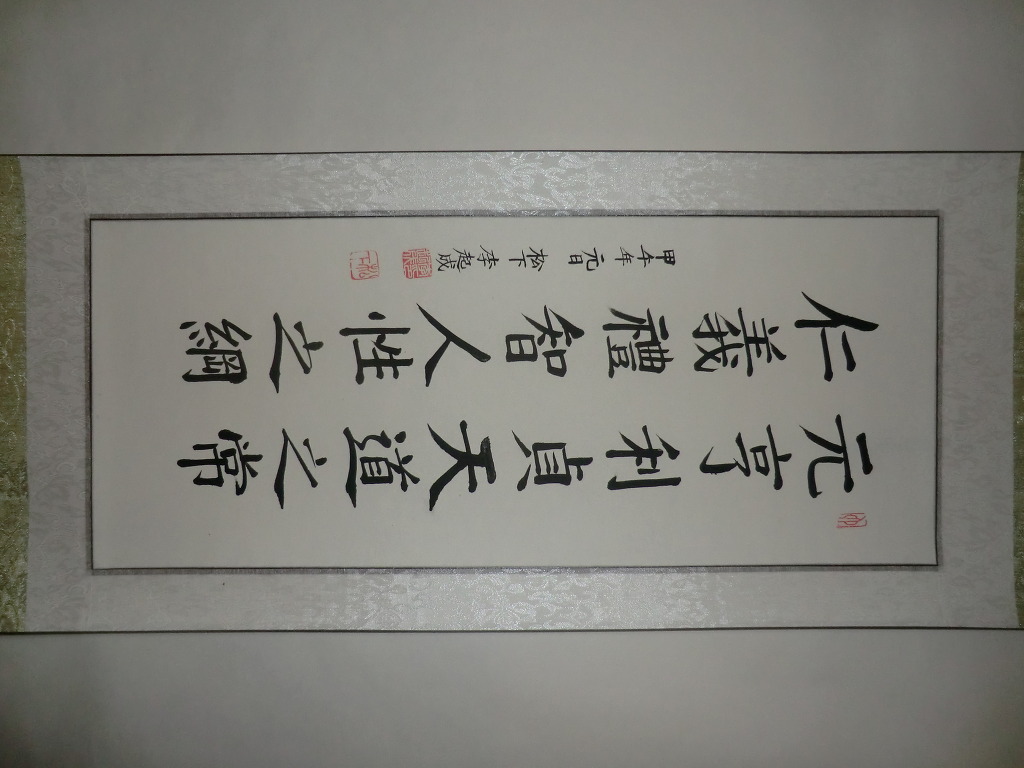 元亨利貞天道之常
仁義禮智人性之綱
甲午年 元日 松下 李起成